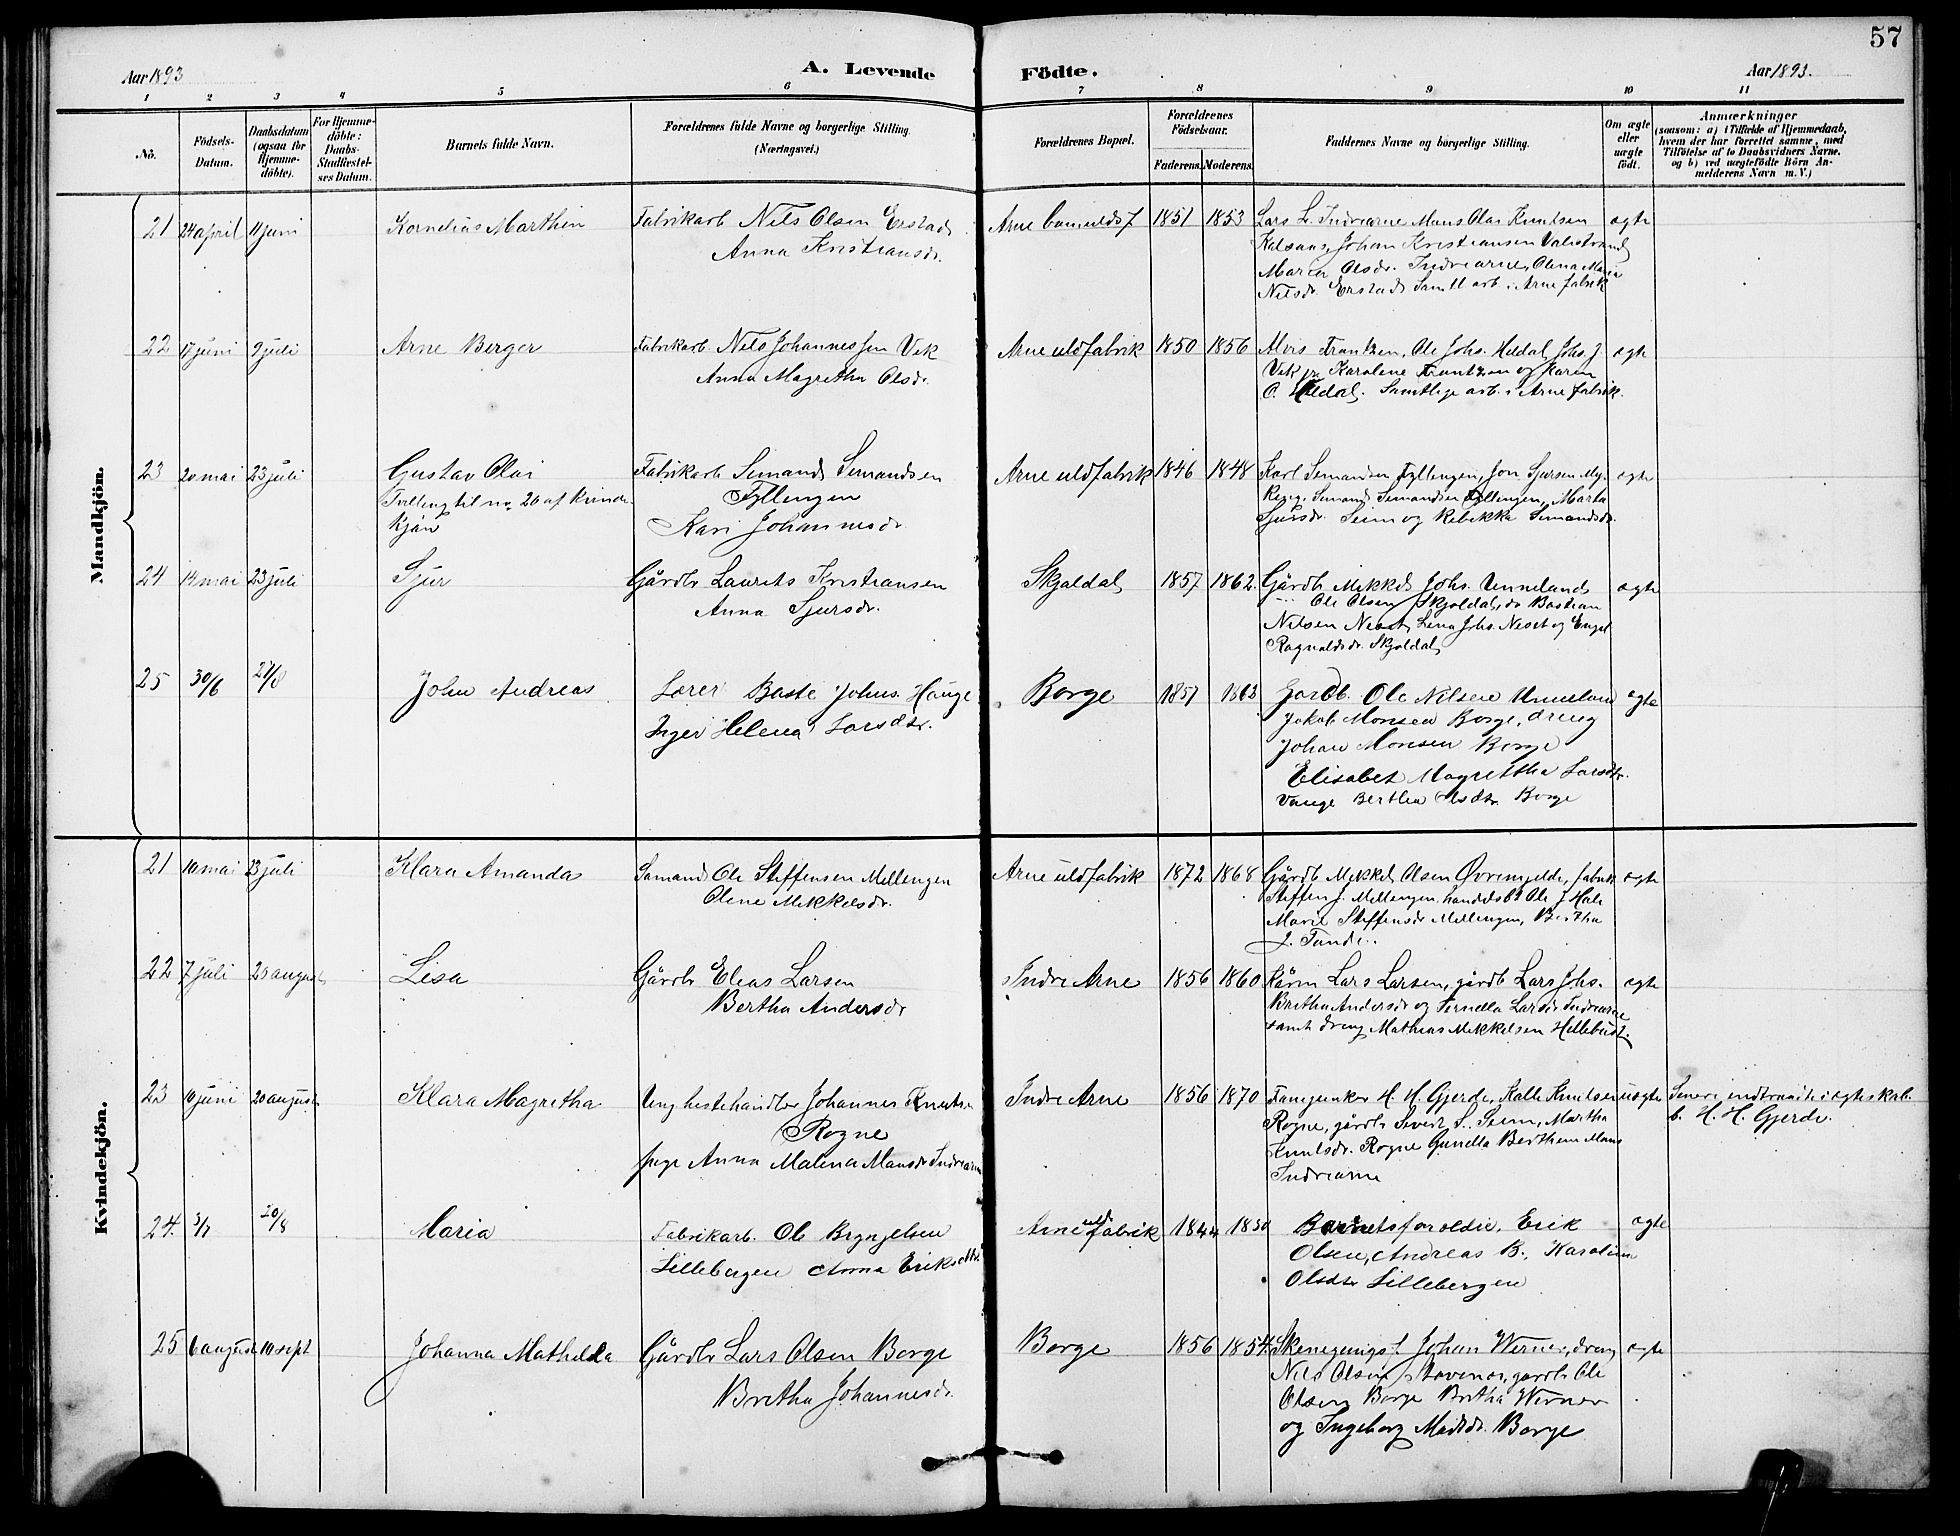 57
Aar 1893
A. Levende
Födte.
Aar 1893.
1 2 3 4 5 6 7 8 9 10 11
No.
Födsels-Datum.
Daabsdatum (ogsaa for Hjemme-döbte).
For Hjemme-döbte: Daabs-Stadfæstel-ses Datum.
Barnets fulde Navn.
Forældrenes fulde Navne og borgerlige Stilling.
(Næringsvei.)
Forældrenes Bopæl.
Forældrenes Födselsaar.
Faderens. Moderens.
Faddernes Navne og borgerlige Stilling.
Om ægte eller uægte födt.
Anmærkninger
(saasom: a) i Tilfælde af Hjemmedaab,
hvem der har forrettet samme, med
Tilföielse af to Daabsvidners Navne.
og b) ved uægtefödte Börn An-
melderens Navn m. V.)
Mandkjön.
21 24 april 11 juni Kornelius Marthin Fabrikarb Nils Olsen Erstad
Anna Kristiansdr.
Arne 1851 1853 Lars L. Indrearne Mons Olai Knutsen
Johan Kristiansen
Maria Olsdr. Indrearne, Olena Maria
Nilsdr. Erstad Samtl arb i Arne fabrik
ægte
22 17 juni 9 juli Arne Berger Fabrikarb. Nils Johannessen Vik
Anna Magretha Olsdr.
Arne uldfabrik 1850 1856 Alvis Frantzen, Ole Johs. Heldal, Johs. J.
Vik Karolene Frantzen og Karen
O. Heldal. Samtlige arb. i Arne fabrik.
ægte
23 20 mai 23 juli Gustav Olai
Tvilling til no 20 af kvinde
kjön
Fabrikarb Simand Simandsen
Fyllingen
Kari Johannesdr
Arne uldfabrik 1846 1848 Karl Simandsen Fyllingen, Jon Sjursen
Simand Simandsen Fyllingen, Marta
Sjursdr. Seim og Rebekka Simandsdr.
ægte
24 14 mai 23 juli Sjur Gårdbr Laurits Kristiansen
Anna Sjursdr.
Skjoldal 1857 1862. Gårdbr Mikkel Johs. Unneland
" Ole Olsen Skjoldal, do Bastian
Nilsen Neset, Lena Johs. Neset og Engel
Ragnaldsdr. Skjoldal
ægte
25 30/6 27/8 John Andreas Lærer Baste Johns. Hauge
Inger Helena Larsdtr.
Borge 1857 1863 Gardb. Ole Nilsen Unneland
Jakob Monsen Borge, dreng
Johan Monsen Borge
Elisabet Magrettha Larsdtr.
Vange Bertha Olsdtr. Borge
ægte
Kvindekjön.
21 10 mai 23 juli Klara Amanda Sømand Ole Steffensen Mellingen
Olene Mekkelsdr.
Arne uldfabrik 1872 1868 Gårdb Mekkel Olsen Øvregjelde, fabrik
Steffen J. Mellingen, handelsb Ole J Hole
Marie Steffensdr Mellingen, Bertha
J. Tunde.
ægte
22 7 juli 20 august Lisa Gårdbr Elias Larsen
Bertha Andersdr
Indre Arne 1856 1860 Kårm Lars Larsen, gårdb Lars Johs.
Britha Andersdr og Pernella Larsdr Indrearne
samt dreng Mathias Mikkelsen Hellebust.
ægte
23 10 juni 20 august Klara Magretha Ung hestehandler Johannes Knutsen
Rogne
pige Anna Malena Monsdr Indrearne
Indre Arne 1856 1870 Fanejunker H. H. Gjerde, Kalle Knutsen
Rogne, gårdb Sivert S. Seim, Martha
Knutsdr. Rogne Gunilla Berthem Mons
Indrearne
uægte Senere indtraadte i ægteskab
b. H. H. Gjerde.
24. 3/7 20/8 Maria Fabrikarb. Ole Brynjelsen
Lillebergen Anna Eriksdtr
Arne uldfabrik 1844 1850 Barnetsforeldre, Erik
Olsen, Andreas B., Karolina
Olsdtr Lillebergen
ægte
25 6 august 10 sept Johanna Mathilda Gårdbr Lars Olsen Borge
Britha Johannesdr.
Borge 1856 1854 Johan Werner, dreng
Nils Olsen gårdb Ole
Olsen Borge Britha Werner
og Ingeborg Madsdr. Borge
ægte